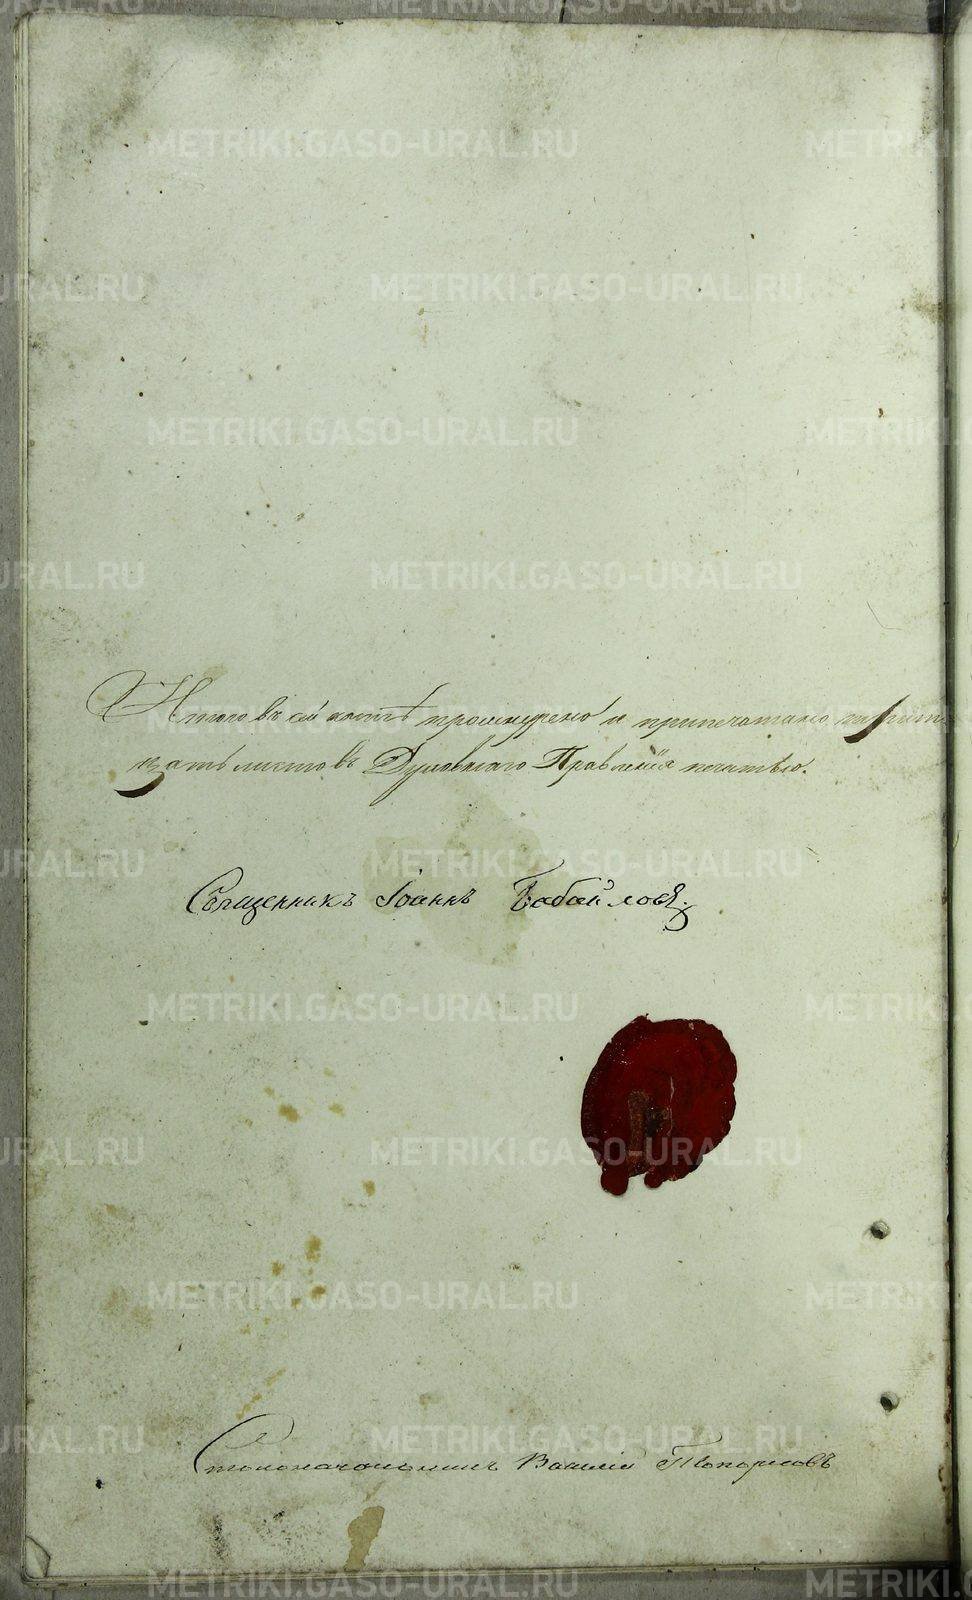 Итого въ сей книгѣ прошнурено и припечатано
цать листовъ Духовнаго Правленія печатью.
Священникъ Іоаннъ Бабайловъ.
Столоначальникъ Василій Топорковъ
METRIKI.GASO-URAL.RU